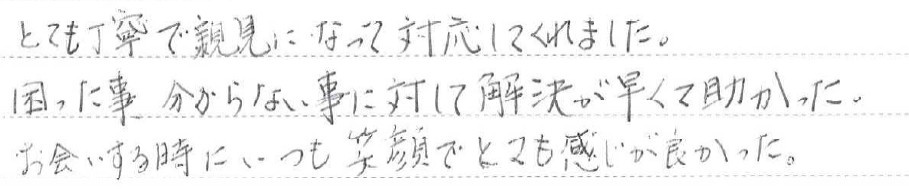 とても丁寧で親見になって対応してくれました。
困った事 分からない事に対して解決が早くて助かった。
お会いする時にいつも笑顔でとても感じが良かった。